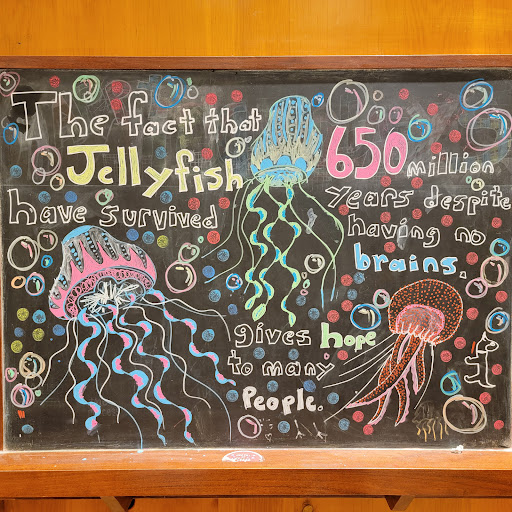 The fact that
Jellyfish
have survived
650 million
years despite
having no
brains,
gives hope
to many
People.